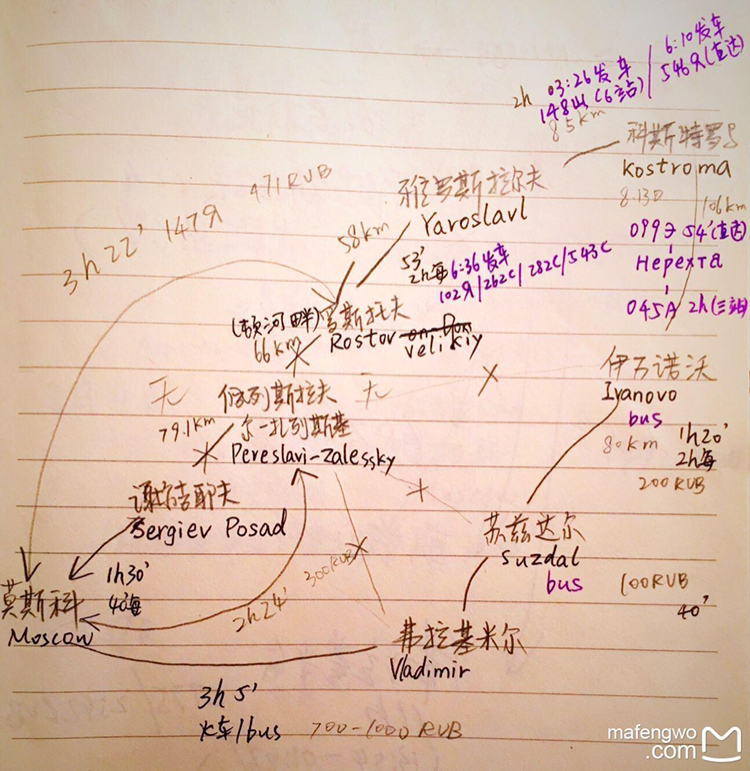 6:10发车
03:26发车
2h
148Ы(6站)
546Я(直达)
85km
科斯特罗马
Kostroma
8.13D
106km
099Э 54'(直达)
Нерехта
045A 2h(三站)
雅罗斯拉尔夫
Yaroslavl
471RUB
3h22' 147Я
58km
53'
2h每
6:36发车
102Я/262C/282C/543C
(顿河畔)罗斯托夫
Rostov
Velikiy
66km
无
佩列斯拉夫
无
79.1km
尔-扎列斯基
Pereslavl-Zalessky
伊万诺沃
Ivanovo
bus
80km
1h20'
2h每
200RUB
谢尔吉耶夫
Sergiev Posad
苏兹达尔
Suzdal
bus
100RUB
40'
300RUB
2h24'
1h30'
40每
莫斯科
Moscow
弗拉基米尔
Vladimir
3h5'
火车/bus
700-1000RUB
mafengwo
.com